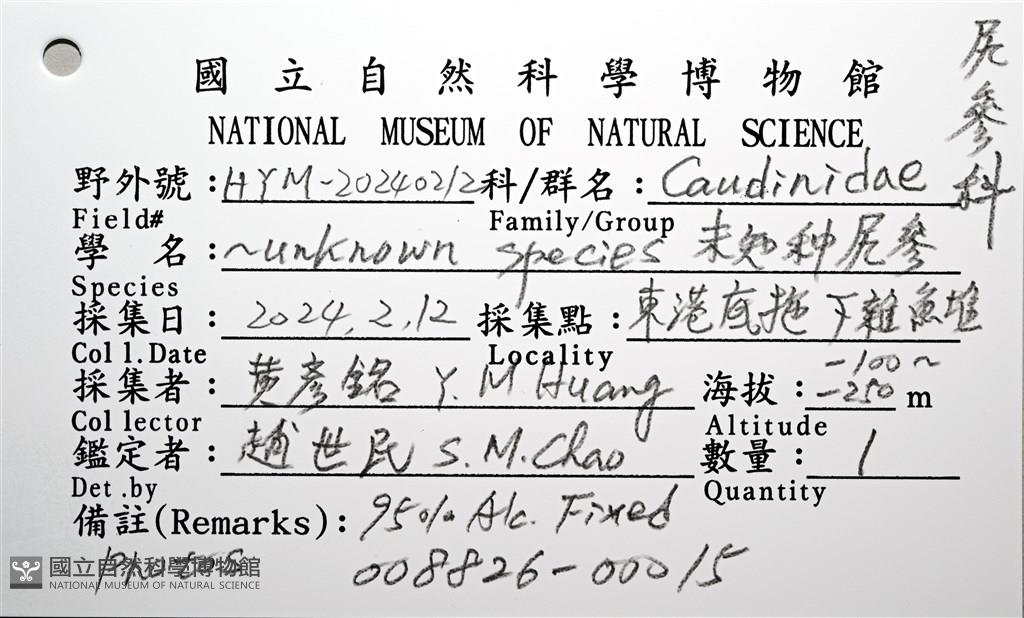 尻參科
國立自然科學博物館
NATIONAL MUSEUM OF NATURAL SCIENCE
野外號：HYM-20240212 科/群名：Caudinidae
Field# Family/Group
學名：~unknown species 未知种尻參
Species
採集日：2024.2.12 採集點：東港底拖下雜魚堆
Coll.Date Locality
採集者：黄彥銘 Y.M Huang 海拔：-100~-250 m
Collector Altitude
鑑定者：趙世民 S.M.Chao 數量：1
Det.by Quantity
備註(Remarks)：95% Alc. Fixed
photos 008826-00015
國立自然科學博物館
NATIONAL MUSEUM OF NATURAL SCIENCE